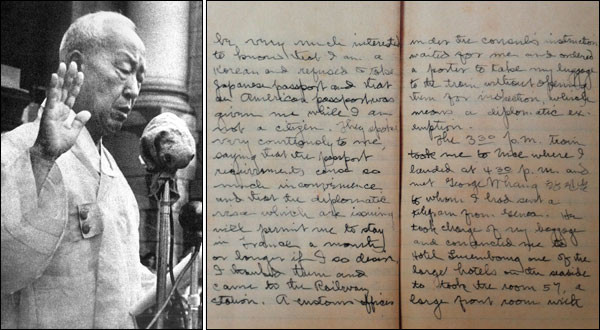 be very much interested
to know that I am a
Korean and refused to take
Japanese passport and that
an American passport was
given me while I am
not a citizen. They spoke
very courteously to me,
saying that the passport
requirements cause so
much inconvenience
and that the diplomatic
visa which are issuing
will permit me to stay
in France, a month
or longer if I so desire.
I thanked them and
came to the Railway
station. A customs officer
under the consul's instruction
waited for me and ordered
a porter to take my luggage
to the train without opening
them for inspection, which
means a diplomatic ex-
emption.
The 3 30 p.m. train
took me to Nice where I
landed at 4 30 p.m. and
met George
to whom I had sent a
telegram from Genoa. He
took charge of my baggage
and conducted me to
Hotel Luxembourg one of the
large hotels on the seaside
took the room 57, a
large front room with